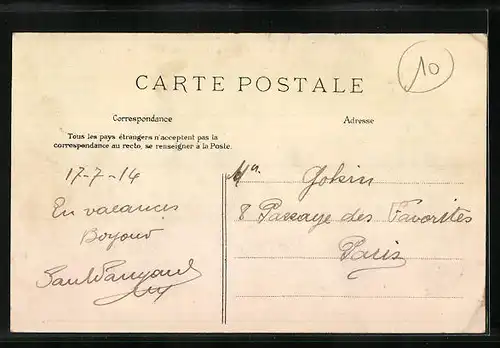 10
CARTE POSTALE
Correspondance
Adresse
Tous les pays étrangers n'acceptent pas la
correspondance au recto, se renseigner à la Poste.
17-7-14
En vacances
Mr. Gokin
8 Passage des Favorites
Paris